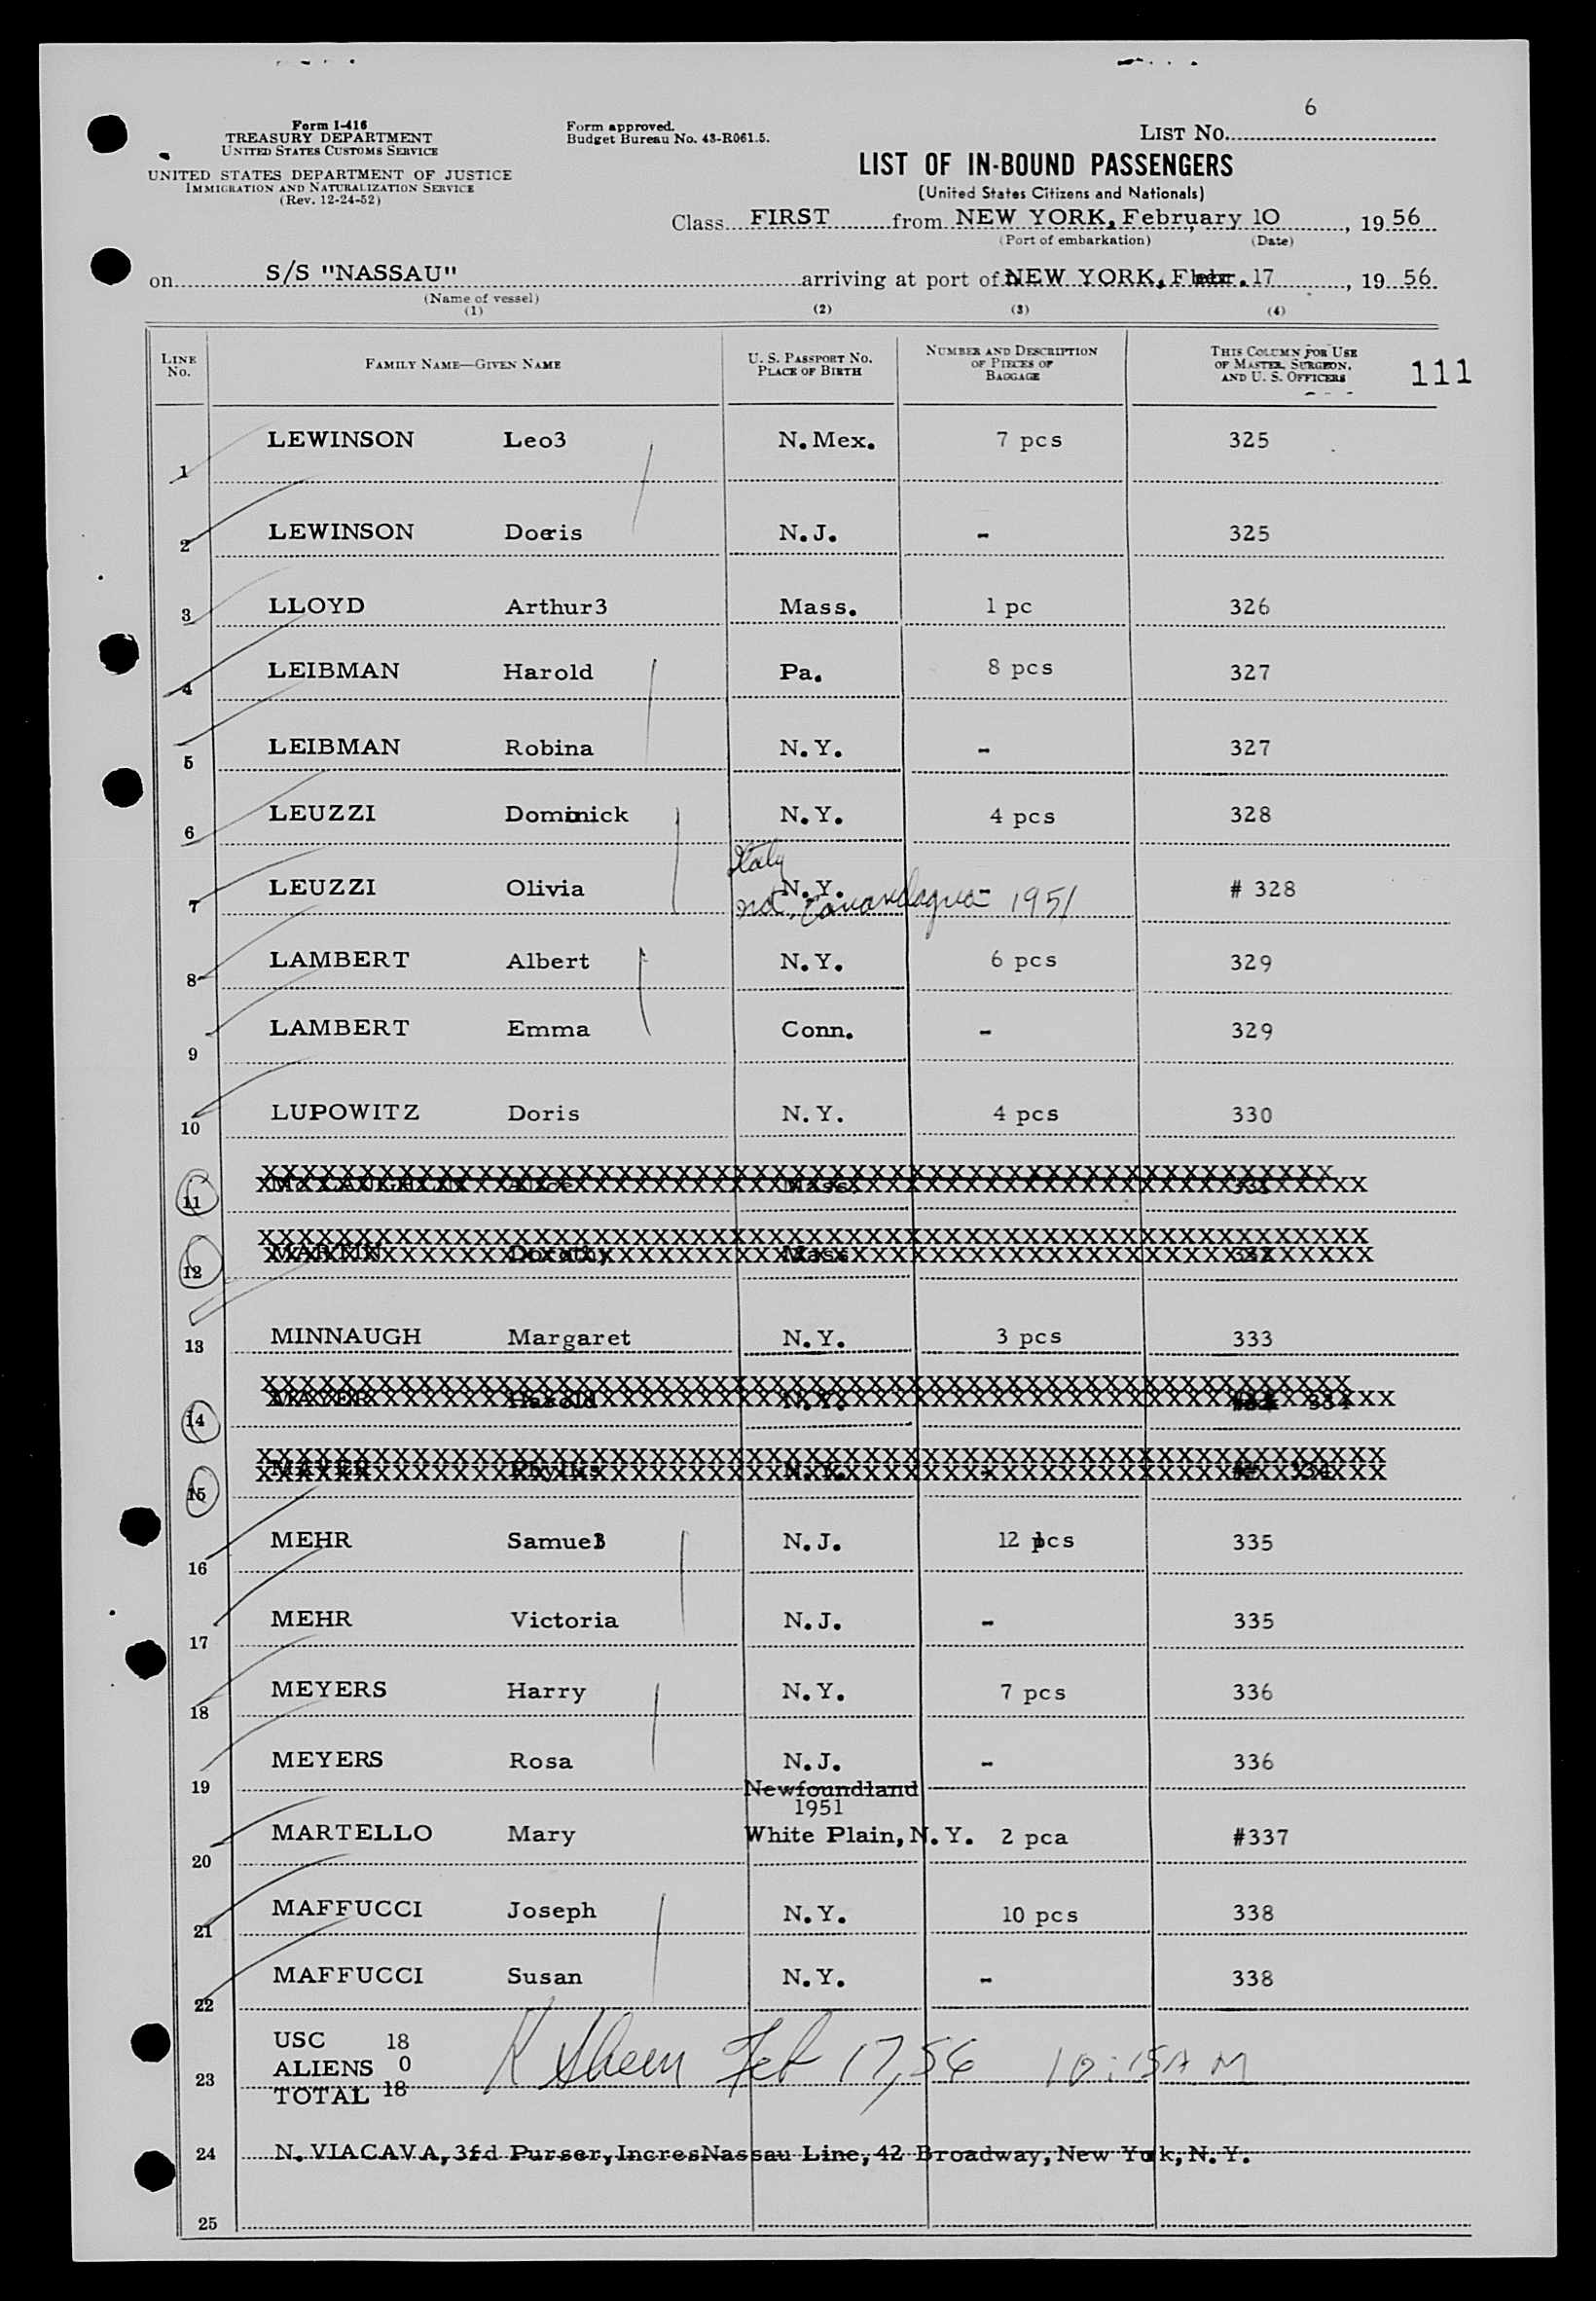 6
Form I-416
TREASURY DEPARTMENT
UNITED STATES CUSTOMS SERVICE
Form approved.
Budget Bureau No. 43-R061.5.
LIST No.
UNITED STATES DEPARTMENT OF JUSTICE
IMMIGRATION AND NATURALIZATION SERVICE
(Rev. 12-24-52)
LIST OF IN-BOUND PASSENGERS
(United States Citizens and Nationals)
Class FIRST from NEW YORK, February 10, 19 56
(Port of embarkation) (Date)
on S/S "NASSAU" arriving at port of NEW YORK, Febr. 17, 19 56
(Name of vessel)
(1) (2) (3) (4)
LINE No. FAMILY NAME—GIVEN NAME U. S. PASSPORT No. PLACE OF BIRTH NUMBER AND DESCRIPTION OF PIECES OF BAGGAGE THIS COLUMN FOR USE OF MASTER, SURGEON, AND U. S. OFFICERS 111
1 LEWINSON Leo3 N.Mex. 7 pcs 325
2 LEWINSON Doris N.J. - 325
3 LLOYD Arthur3 Mass. 1 pc 326
4 LEIBMAN Harold Pa. 8 pcs 327
5 LEIBMAN Robina N.Y. - 327
6 LEUZZI Dominick N.Y. 4 pcs 328
Italy
7 LEUZZI Olivia N.Y. - # 328
nat., Canandagua 1951
8 LAMBERT Albert N.Y. 6 pcs 329
9 LAMBERT Emma Conn. - 329
10 LUPOWITZ Doris N.Y. 4 pcs 330
11 Mc LAUGHLIN Alice Mass. 331
12 MARTIN Dorothy Mass 332
13 MINNAUGH Margaret N.Y. 3 pcs 333
14 MAYER Harold N.Y. 334
15 MAYER Phyllis N.Y. - 334
16 MEHR Samuel N.J. 12 pcs 335
17 MEHR Victoria N.J. - 335
18 MEYERS Harry N.Y. 7 pcs 336
19 MEYERS Rosa N.J. - 336
Newfoundland
1951
20 MARTELLO Mary White Plain, N.Y. 2 pca #337
21 MAFFUCCI Joseph N.Y. 10 pcs 338
22 MAFFUCCI Susan N.Y. - 338
USC 18
ALIENS 0
23 TOTAL 18
K Sheen Feb 17, 56 10:15 AM
24 N. VIACAVA, 3fd Purser, IncresNassau Line, 42 Broadway, New York, N.Y.
25